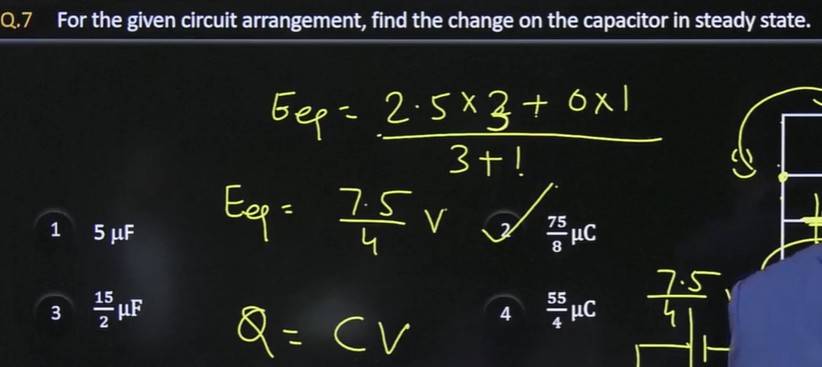 Q.7 For the given circuit arrangement, find the change on the capacitor in steady state.
Eeq = 2.5 × 3 + 0 × 1
3 + 1
Eeq = 7.5 V
4
1 5 μF
2 75/8 μC
3 15/2 μF
4 55/4 μC
Q = CV
7.5
4